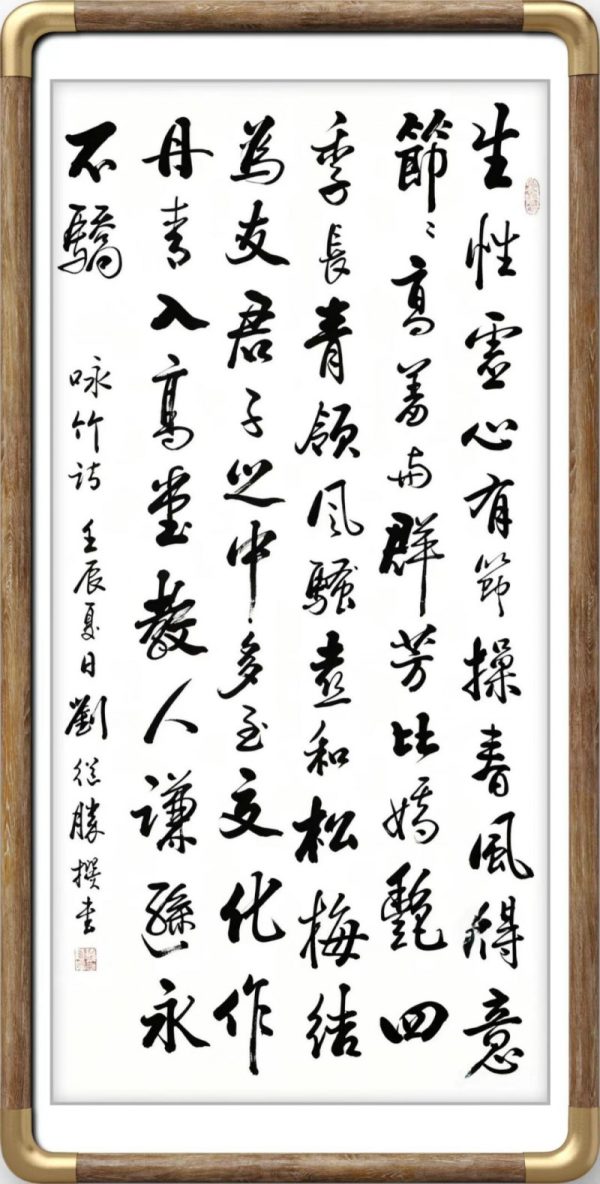 生性虛心有節操春風得意
節〻高羞与群芳比嬌艷四
季長青領風騷喜和松梅結
為友君子之中多至交化作
丹青入高堂教人謙遜永
不驕
咏竹詩 壬辰夏日 劉從勝撰書